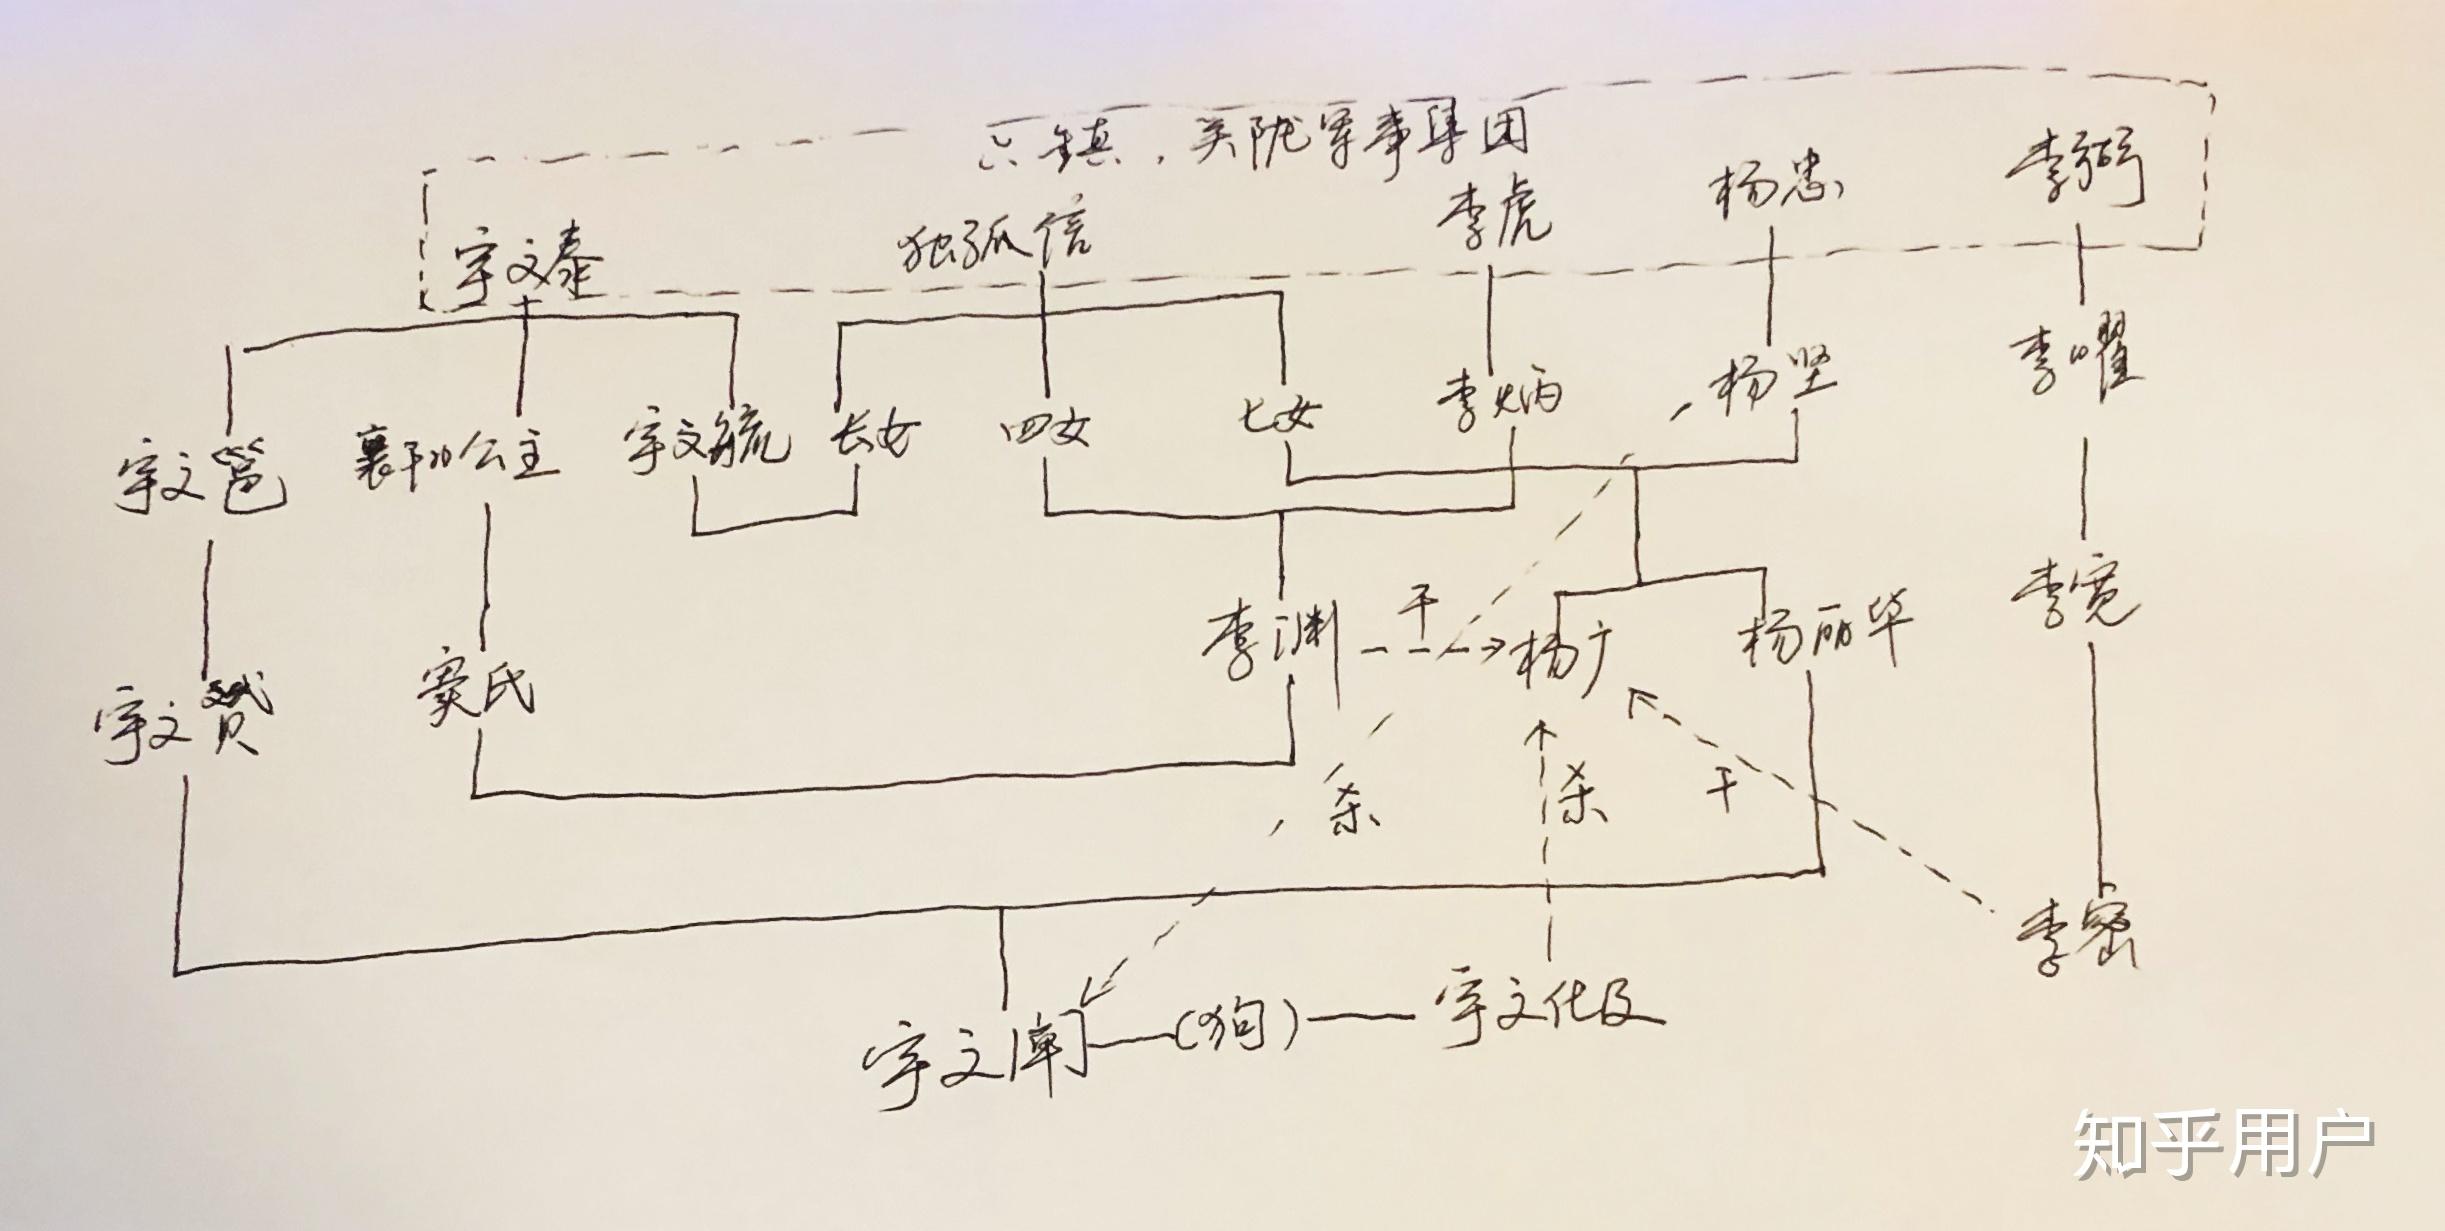 六镇，关陇军事集团
宇文泰 独孤信 李虎 杨忠 李弼
宇文邕 襄阳公主 宇文毓 长女 四女 七女 李炳 杨坚 李曜
宇文赟 窦氏 李渊 干 杨广 杨丽华 李宽
杀 杀 干
李密
宇文阐 (狗) 宇文化及
知乎用户